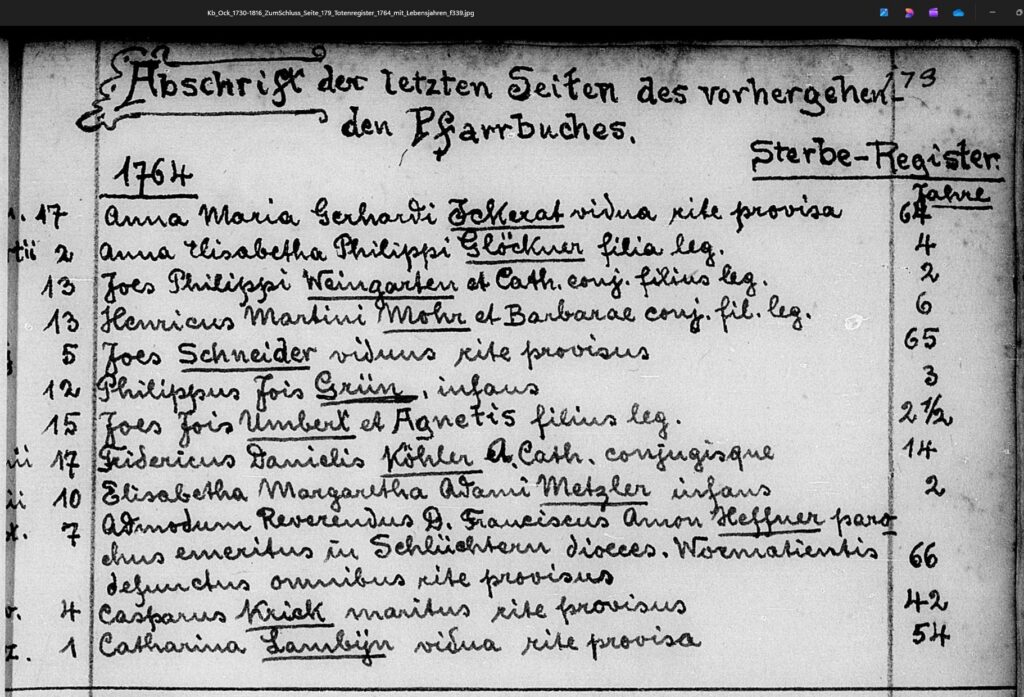 Kb_Ock_1730-1816_ZumSchluss_Seite_179_Totenregister_1764_mit_Lebensjahren_f339.jpg
Abschrift der letzten Seiten des vorhergehen- 179
den Pfarrbuches.
Sterbe-Register.
1764 Jahre
17 Anna Maria Gerhardi Ickerat vidua rite provisa 64
tii 2 Anna Elisabetha Philippi Glöckner filia leg. 4
13 Joes Philippi Weingarten et Cath. conj. filius leg. 2
13 Henricus Martini Mohr et Barbarae conj. fil. leg. 6
5 Joes Schneider viduus rite provisus 65
12 Philippus Jois Grün, infans 3
15 Joes Jois Umbert et Agnetis filius leg. 2 1/2
ii 17 Fridericus Danielis Köhler A. Cath. conjugisque 14
ii 10 Elisabetha Margaretha Adami Metzler infans 2
t. 7 Admodum Reverendus D. Franciscus Amon Heffner paro-
chus emeritus in Schlüchtern dioeces. Wormatientis 66
defunctus omnibus rite provisus
4 Casparus Krick maritus rite provisus 42
1 Catharina Lambijn vidua rite provisa 54